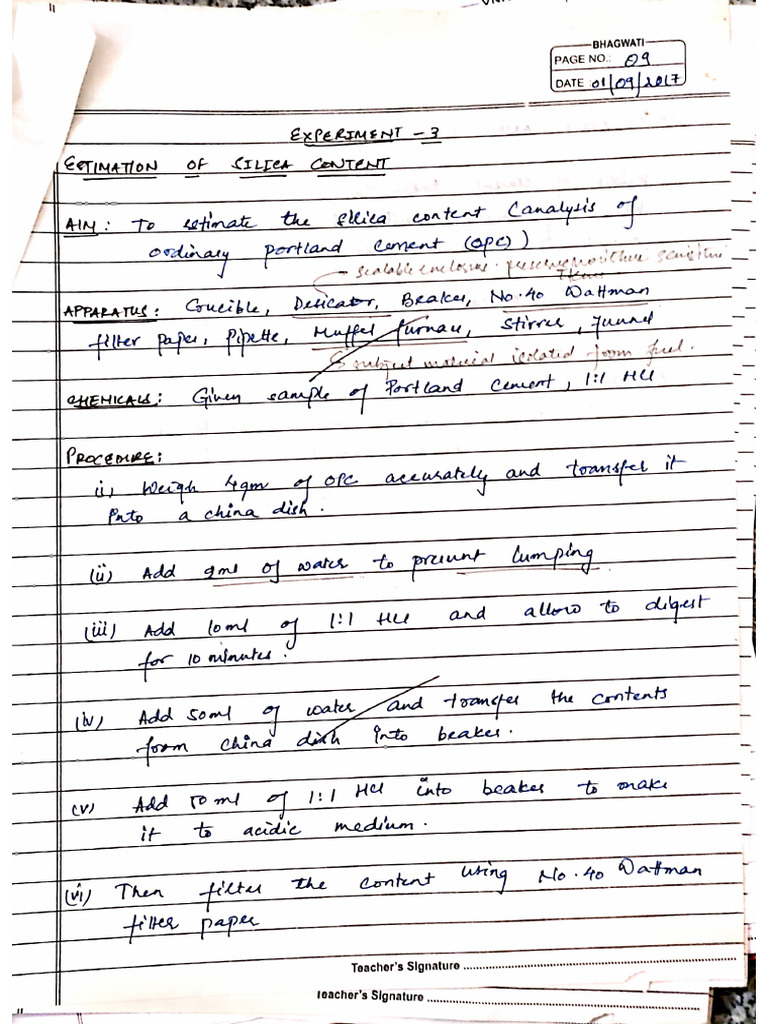 BHAGWATI
PAGE NO.: 09
DATE 01/09/2017
EXPERIMENT - 3
ESTIMATION OF SILICA CONTENT
AIM: To estimate the silica content (analysis of
ordinary portland cement (OPC))
sealable enclosure. preserve moisture sensitive
items
APPARATUS: Crucible, Desicator, Beaker, No.40 Wattman
filter paper, pipette, Muffel furnace, stirrer, Funnel
subject material isolated from fuel.
CHEMICALS: Given sample of Portland cement, 1:1 HCl
PROCEDURE:
i) Weigh 4gm of OPC accurately and transfer it
into a china dish.
(ii) Add 9ml of water to prevent lumping
(iii) Add 10ml of 1:1 HCl and allow to digest
for 10 minutes.
(iv) Add 50ml of water and transfer the contents
from china dish into beaker.
(v) Add 50 ml of 1:1 HCl into beaker to make
it to acidic medium.
(vi) Then filter the content using No.40 Wattman
filter paper
Teacher's Signature
Teacher's Signature